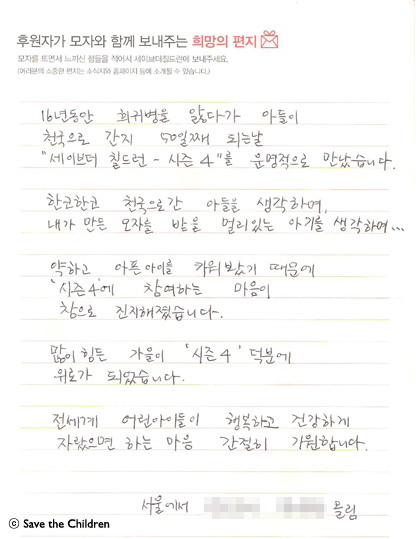 후원자가 모자와 함께 보내주는 희망의 편지
모자를 뜨면서 느끼신 점들을 적어서 세이브더칠드런에 보내주세요.
(여러분의 소중한 편지는 소식지와 홈페이지 등에 소개될 수 있습니다.)
16년동안 희귀병을 앓다가 아들이
천국으로 간지 50일째 되는날
"세이브더 칠드런 - 시즌 4"를 운명적으로 만났습니다.
한코한코 천국으로간 아들을 생각하며,
내가 만든 모자를 받을 멀리있는 아기를 생각하며...
약하고 아픈아이를 키워봤기 때문에
'시즌4'에 참여하는 마음이
참으로 진지해졌습니다.
많이 힘든 가을이 '시즌4' 덕분에
위로가 되었습니다.
전세계 어린아이들이 행복하고 건강하게
자랐으면 하는 마음 간절히 기원합니다.
서울에서 드림
ⓒ Save the Children